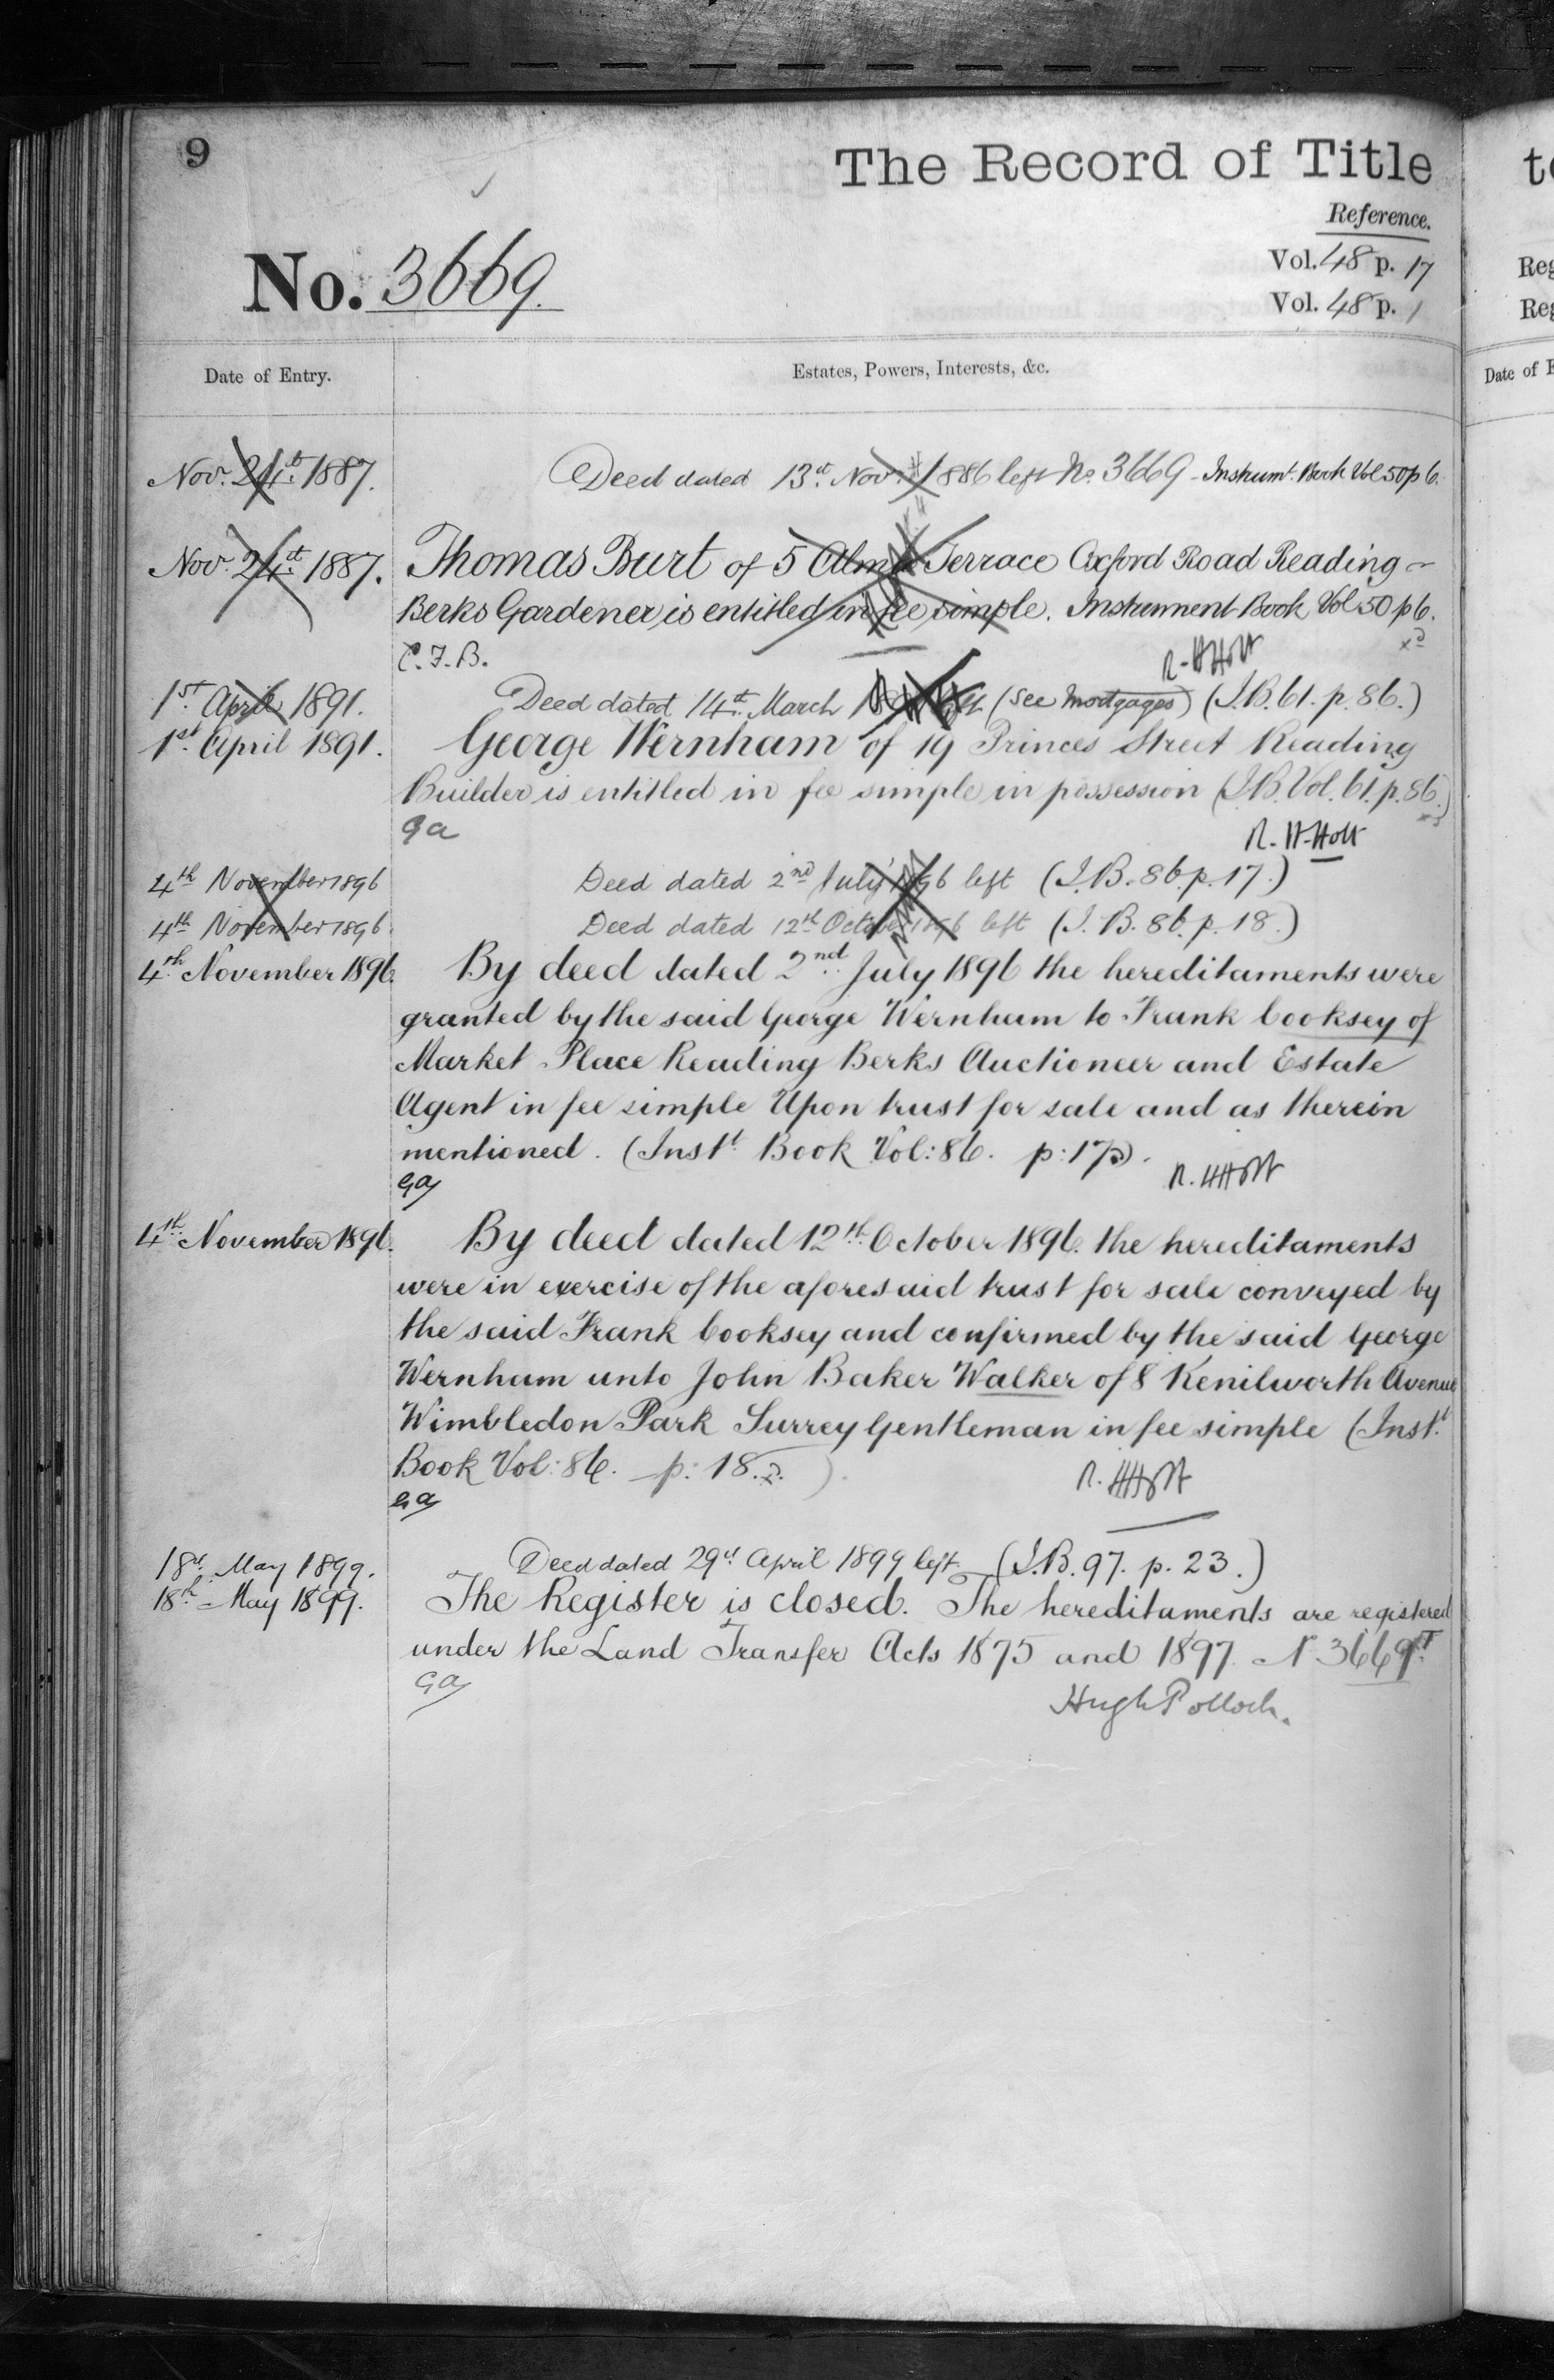 9
The Record of Title
Reference.
No. 3669.
Vol. 48 p. 17
Vol. 48 p. 1
Date of Entry.
Estates, Powers, Interests, &c.
Nov. 24th 1887. Deed dated 13th Nov. 1886 left No. 3669 - Instrumt. Book Vol 50 p 6.
Nov. 24th 1887. Thomas Burt of 5 Alma Terrace Oxford Road Reading
Berks Gardener is entitled in fee simple. Instrument Book Vol 50 p 6.
C.F.B. R. H Holt
1st. April 1891. Deed dated 14th. March left (see Mortgages) (I.B. 61. p. 86.)
1st. April 1891. George Wernham of 19 Princes Street Reading
Builder is entitled in fee simple in possession (I.B. Vol. 61. p. 86.)
ga R. H. Holt
4th November 1896 Deed dated 2nd July 1896 left (I.B. 86. p. 17.)
4th November 1896 Deed dated 12th October 1896 left (I.B. 86. p. 18.)
4th. November 1896. By deed dated 2nd. July 1896 the hereditaments were
granted by the said George Wernham to Frank Cooksey of
Market Place Reading Berks Auctioneer and Estate
Agent in fee simple Upon trust for sale and as therein
mentioned. (Instt. Book Vol: 86. p: 17).
ga R. H Holt
4th. November 1896. By deed dated 12th. October 1896. the hereditaments
were in exercise of the aforesaid trust for sale conveyed by
the said Frank Cooksey and confirmed by the said George
Wernham unto John Baker Walker of 8 Kenilworth Avenue
Wimbledon Park Surrey Gentleman in fee simple (Instt.
Book Vol: 86. p: 18. )
ga R. H Holt
18th. May 1899. Deed dated 29th April 1899 left (I.B. 97. p. 23.)
18th May 1899. The Register is closed. The hereditaments are registered
under the Land Transfer Acts 1875 and 1897. No 3669T.
ga Hugh Pollock.
Reg
Reg
Date of